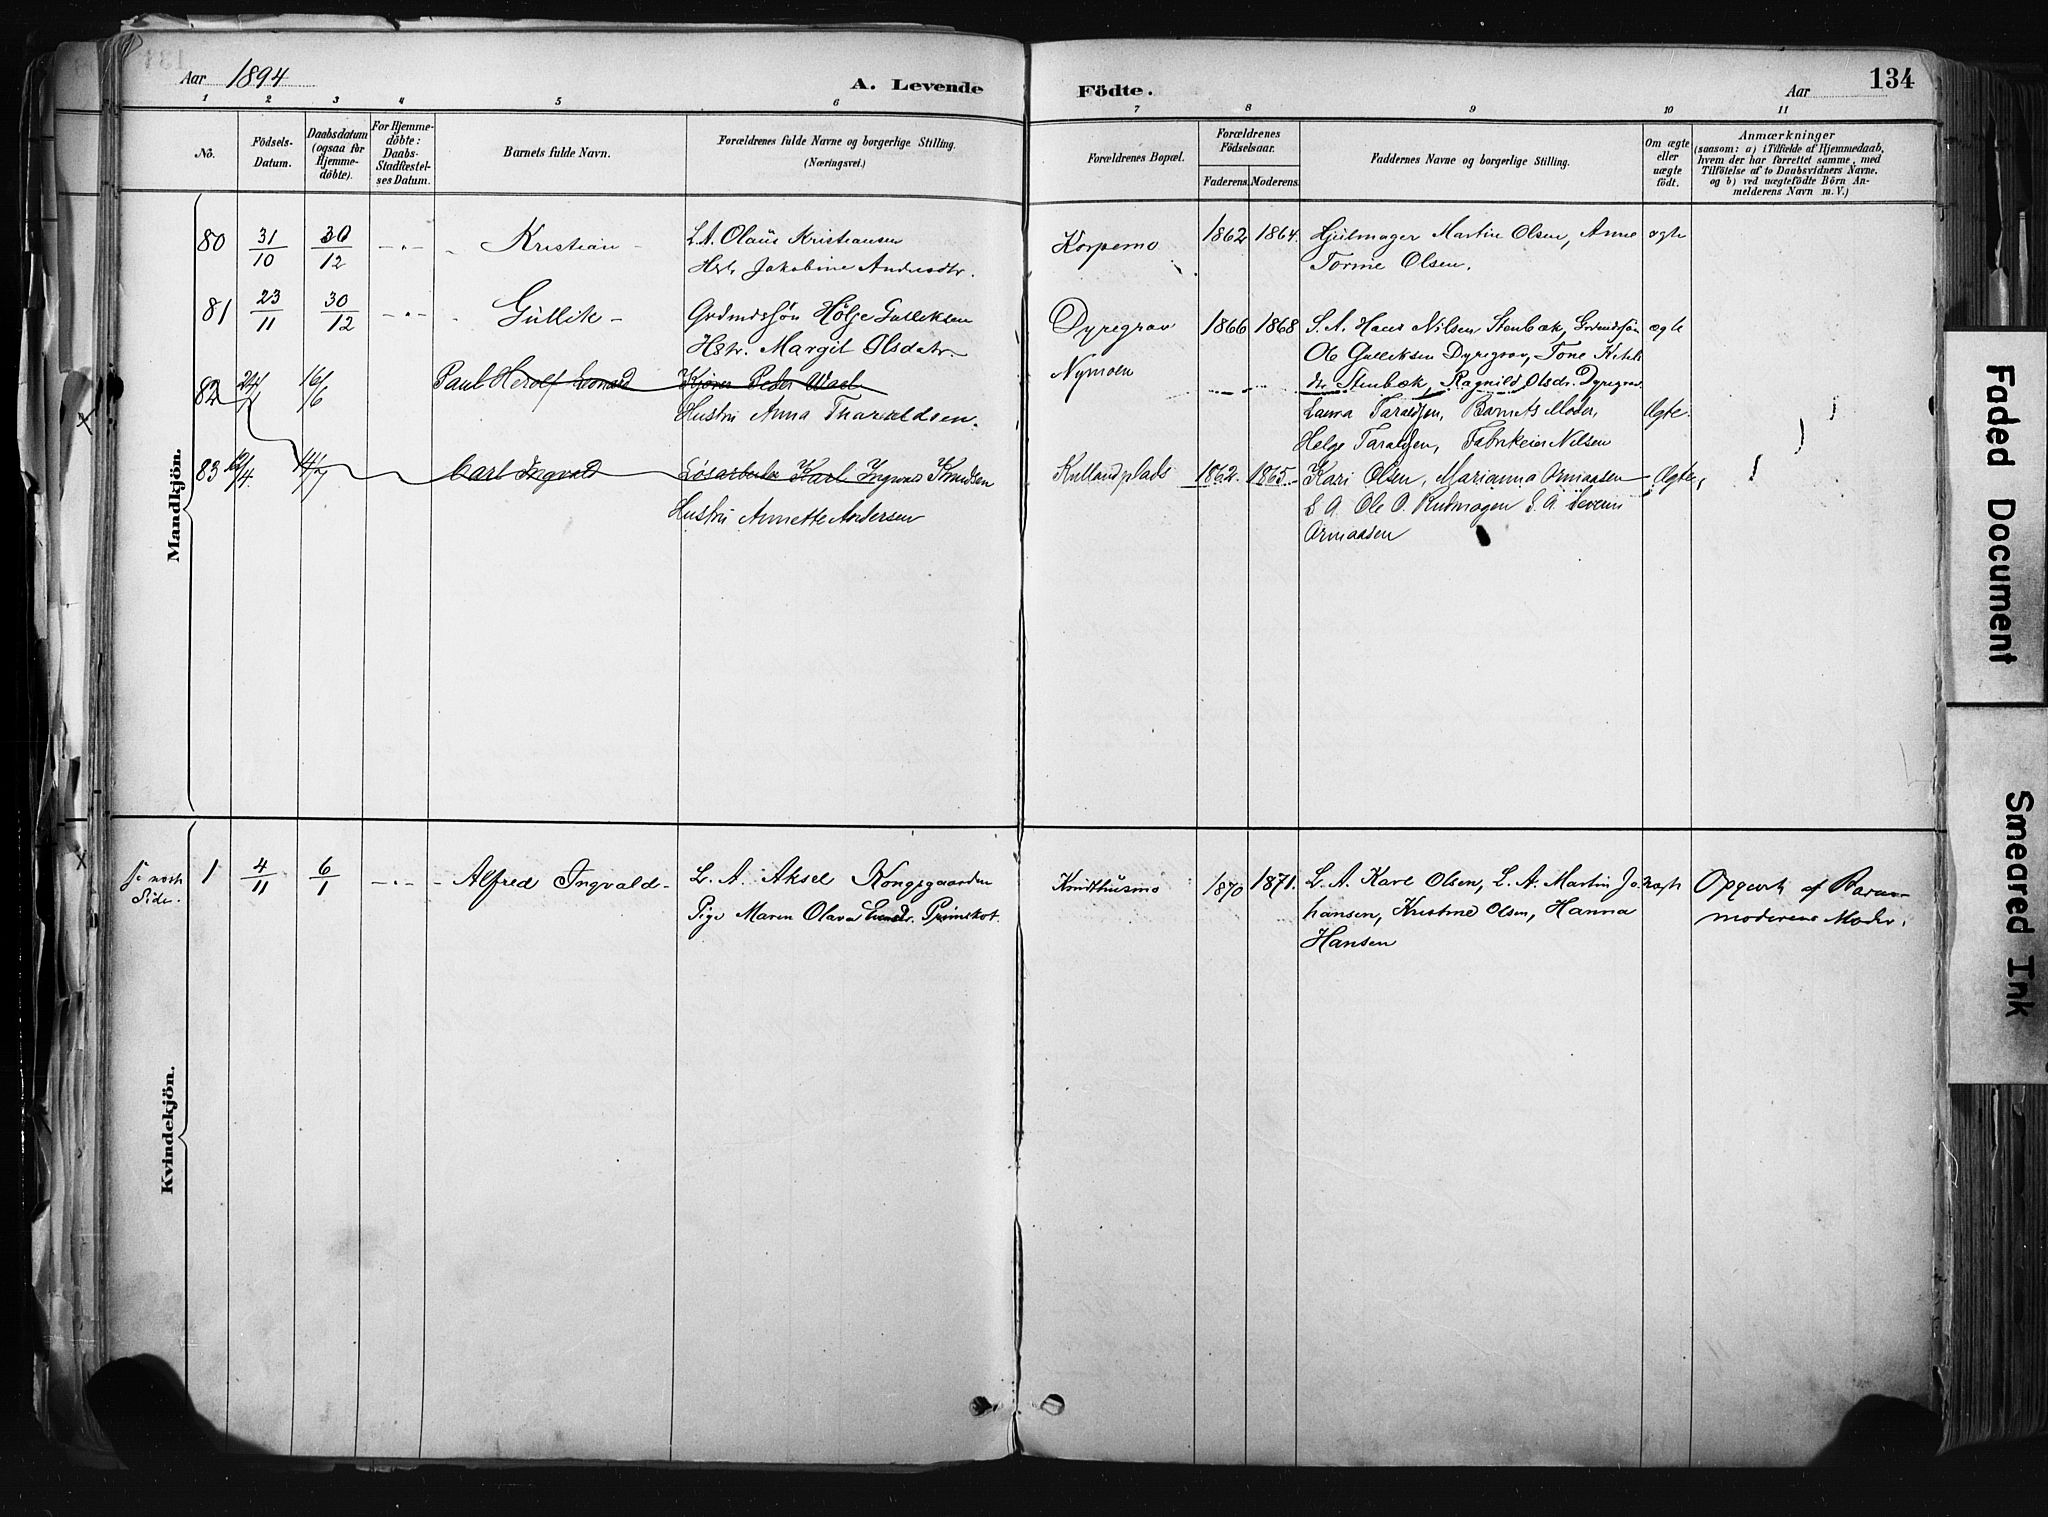 Aar 1894
A. Levende Födte.
Aar
134
1 2 3 4 5 6 7 8 9 10 11
No.
Födsels-Datum.
Daabsdatum (ogsaa for Hjemmedöbte).
For Hjemmedöbte: Daabs-Stadfæstelses Datum.
Barnets fulde Navn.
Forældrenes fulde Navne og borgerlige Stilling. (Næringsvei.)
Forældrenes Bopæl.
Forældrenes Födselsaar.
Faderens. Moderens.
Faddernes Navne og borgerlige Stilling.
Om ægte eller uægte födt.
Anmærkninger
(saasom: a) i Tilfælde af Hjemmedaab, hvem der har forrettet samme, med Tilföielse af to Daabsvidners Navne, og b) ved uægtefödte Börn Anmelderens Navn m. V.)
Mandkjön.
80 31/10 30/12 Kristian L.A. Olaus Kristiansen Korpemo 1862 1864. Hjulmager Martin Olsen, Anne ægte
Hstr. Jakobine Andersdtr. Tormie Olsen.
81 23/11 30/12 Gullik Grdmdssøn Hølje Gulliksen Dyregrav 1866 1868 S. A. Hans Nilsen Stenbæk, Grdmdssøn ægte
Hstr. Margit Olsdatr Nymoen Ole Gulliksen Dyregrav, Tone
Stenbæk, Ragnild Olsdr. Dyregrav
82 24/1 16/6 Paul Herolf Leonard Kjører Peder Wael
Hustru Anna Tharaldsen. Laura Taraldsen, Barnets Moder, Ægte.
Helge Taraldsen, Nilsen
83 12/4 14/7 Carl Ingvald Løsarbeider Karl Ingvald Knudsen Kullandplads 1862. 1865. Kari Olsen, Marianna Ormaasen Ægte
Hustru Annette Andersen S A. Ole O. S. A. Severin
Ormaasen
Kvindekjön.
Se næste Side. 1 4/11 6/1 Alfred Ingvald L. A. Aksel Kongsgaarden Knudthusmo 1870 1871. L. A. Karl Olsen, L. A. Martin Jo- uægte Opgivet af Barne-
Pige Maren Olava Primskot. hansen, Kristine Olsen, Hanna moderens Moder.
Hansen
Faded Document
Smeared Ink